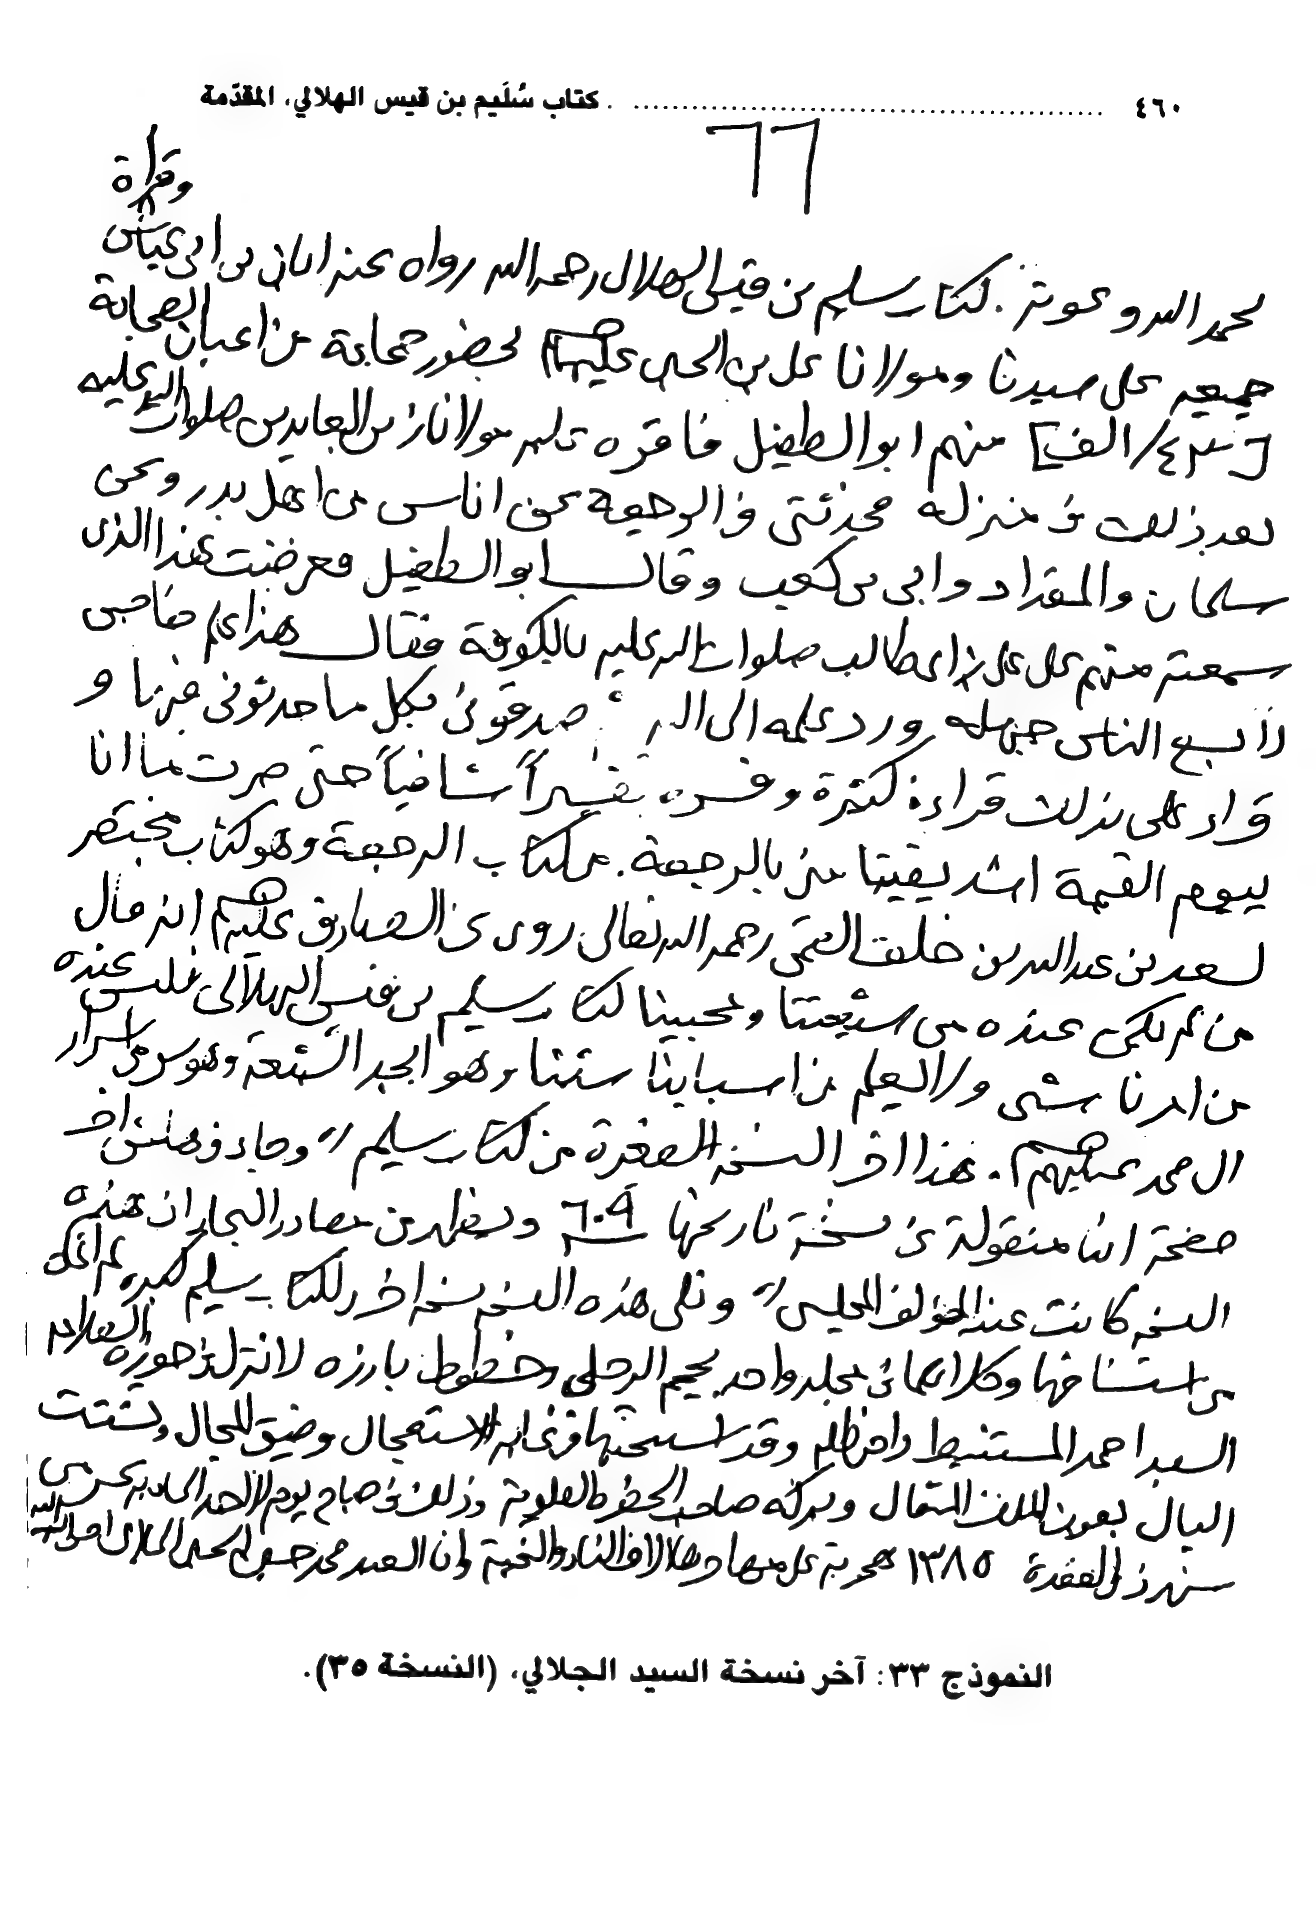 ٤٦٠ ........ كتاب سُلَيم بن قيس الهلالي، المقدّمة
٦٦
وقراه
بحمد الله وعونه. كتاب سليم بن قيس الهلالي رحمه الله رواه عنه ابان بن ابي عياش
جميعه على سيدنا ومولانا علي بن الحسين عليهما بحضور جماعة من اعيان الصحابة
[٤٣/الف] منهم ابو الطفيل فاقره عليه مولانا زين العابدين صلوات الله عليه
بعد ذلك في منزله فحدثني في الرجعة عن اناس من اهل بدر وعن
سلمان والمقداد وابي بن كعب وقال ابو الطفيل فعرضت هذا الذي
سمعته منهم على علي بن ابي طالب صلوات الله عليه بالكوفة فقال هذا علم خاص
الناس جهله ورد علمه الى الله صدقوني بكل ما حدثوني فيها و
علي بذلك قراءة كثيرة وفسره تفسيراً شافياً حتى صرت ما انا
بيوم القيمة اشد يقينا مني بالرجعة. من كتاب الرجعة وهو كتاب مختصر
لسعد بن عبد الله بن خلف القمي رحمه الله تعالى روى عن الصادق عليه انه قال
من لم يكن عنده من شيعتنا ومحبينا كتاب سليم بن قيس الهلالي فليس عنده
من امرنا شي ولا يعلم من اسبابنا شئنا وهو ابجد الشيعة وهو سر من اسرار
ال محمد عليهم. هذا اخر النسخة الصغرة من كتاب سليم" وجاء في هامش اخر
صفحة انها منقولة عن نسخة تاريخها ٦٠٩ ويظهر من مصادر البحار ان هذه
النسخة كانت عند المؤلف المجلسي" وتلي هذه النسخة نسخة اخر لكتاب سليم كبيرة لم اتمكن
من استنساخها وكلاهما في مجلد واحد بحجم الرحلي وخطوط بارزه لا تزل في حوزة العلامه
السيد احمد المستنبط وقد استنسختها الاستعجال وضيق المجال وتشتت
البال بعون الملك المتعال وبركة صاحب الحضرة العلوية وذلك في صباح يوم الاحد الحادي من
شهر ذي القعدة ١٣٨٥ هجرية على وانا العبد محمد حسين الحسيني الجلالي
النموذج ٣٣: آخر نسخة السيد الجلالي، (النسخة ٣٥).